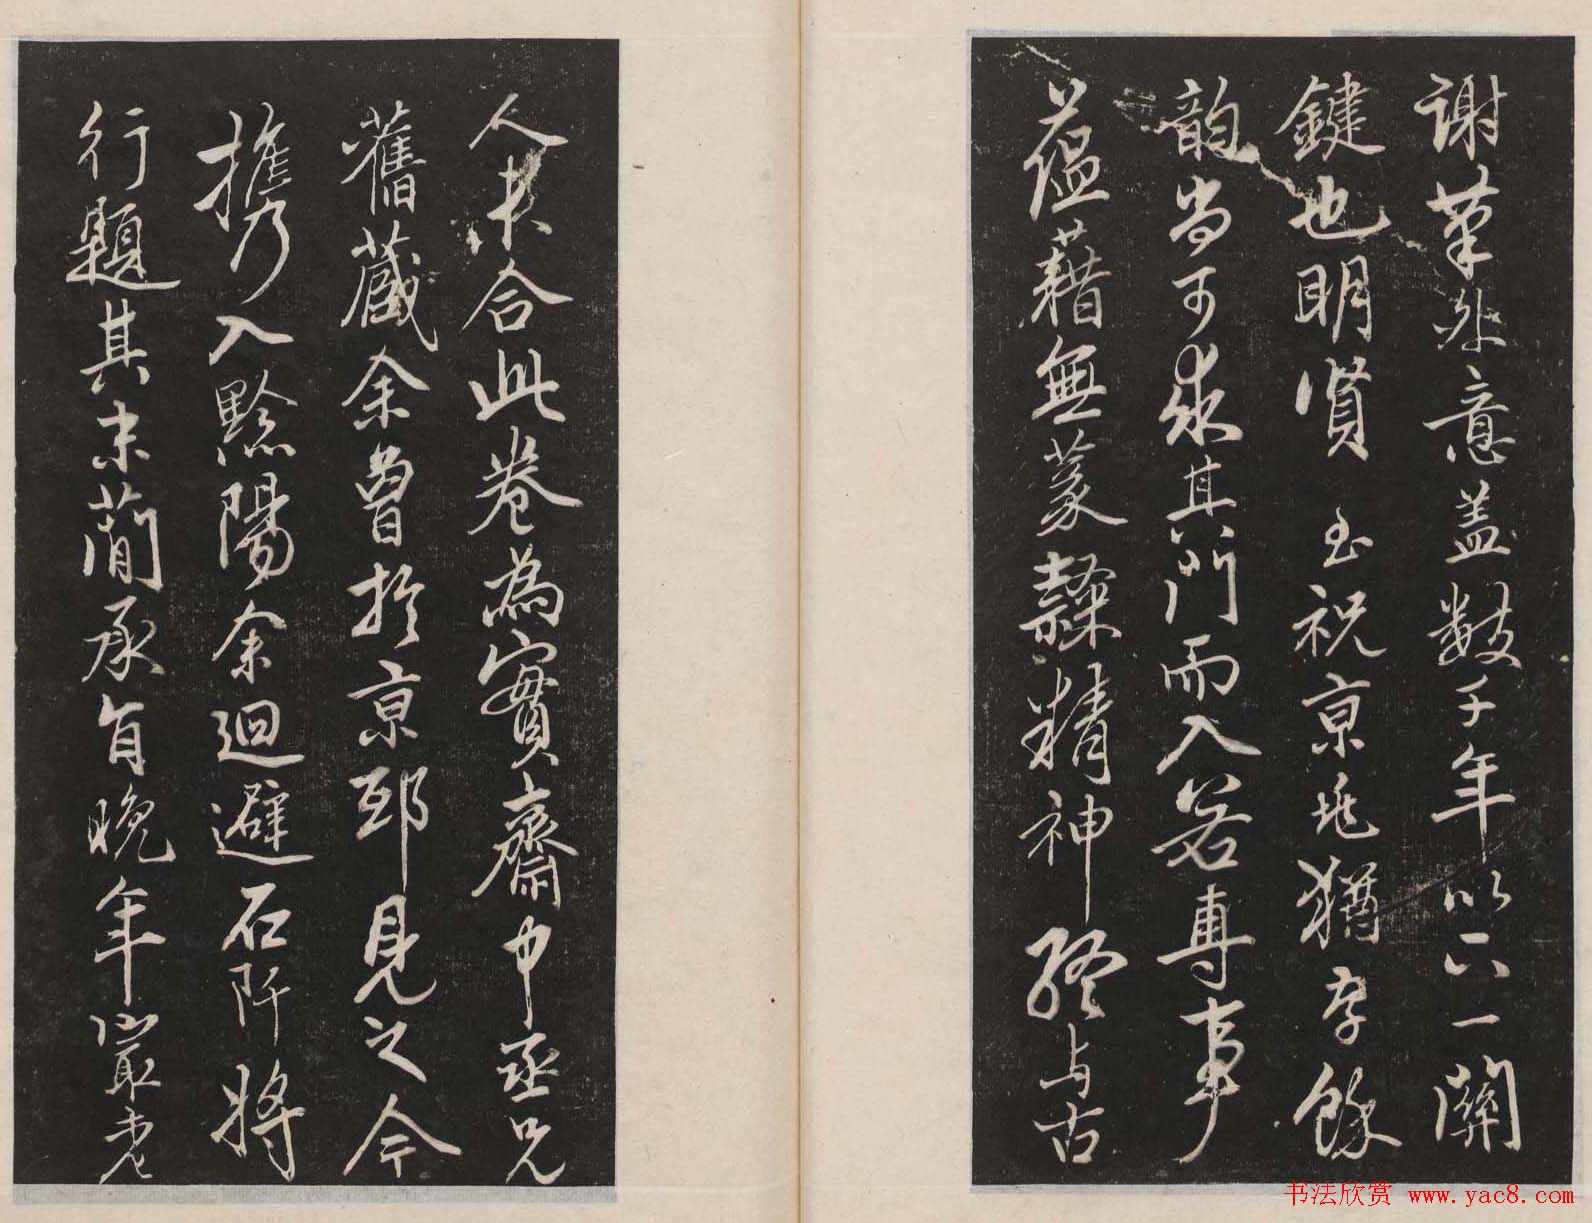 谢草非意盖数千年以一關
鍵也明賢至祝京兆猶存餘
韵尚可求其門而入若専事
蕴藉無篆隸精神終与古
人未合此卷為實齋中丞兄
舊藏余曾於京邸見之今
携乃入黔陽余迴避石阡將
行題其末蕳承旨晚年巖老
书法欣赏 www.yac8.com